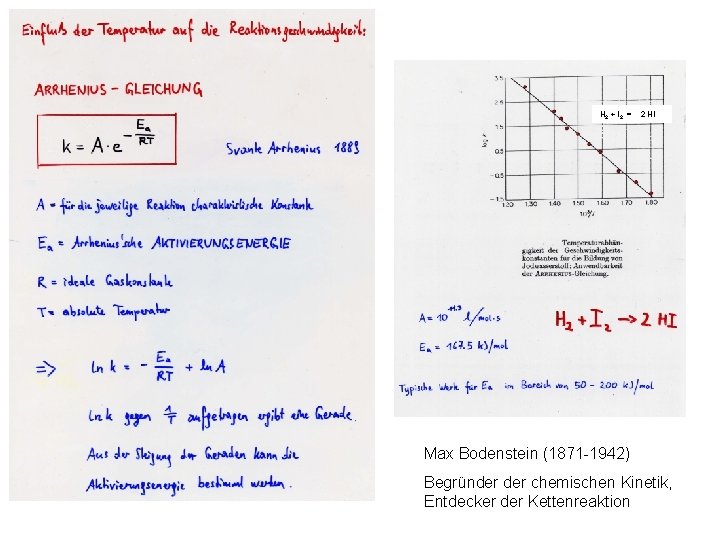 Einfluß der Temperatur auf die Reaktionsgeschwindigkeit:
ARRHENIUS - GLEICHUNG
k = A·e^(-Ea/RT)
Svante Arrhenius 1889
A = für die jeweilige Reaktion charakteristische Konstante
Ea = Arrhenius'sche AKTIVIERUNGSENERGIE
R = ideale Gaskonstante
T = absolute Temperatur
=> ln k = - Ea/RT + ln A
ln k gegen 1/T aufgetragen ergibt eine Gerade.
Aus der Steigung der Geraden kann die
Aktivierungsenergie bestimmt werden.
H2 + I2 = 2 HI
3.5
2.5
1.5
0.5
-0.5
-1.5
log k
1.20 1.30 1.40 1.50 1.60 1.70 1.80
Temperaturabhän-
gigkeit der Geschwindigkeits-
konstanten für die Bildung von
Jodwasserstoff; Anwendbarkeit
der ARRHENIUS-Gleichung.
l/mol·s
H2 + I2 → 2 HI
Ea = 167.5 kJ/mol
Typische Werte für Ea im Bereich von 50 - 200 kJ/mol
Max Bodenstein (1871-1942)
Begründer der chemischen Kinetik,
Entdecker der Kettenreaktion